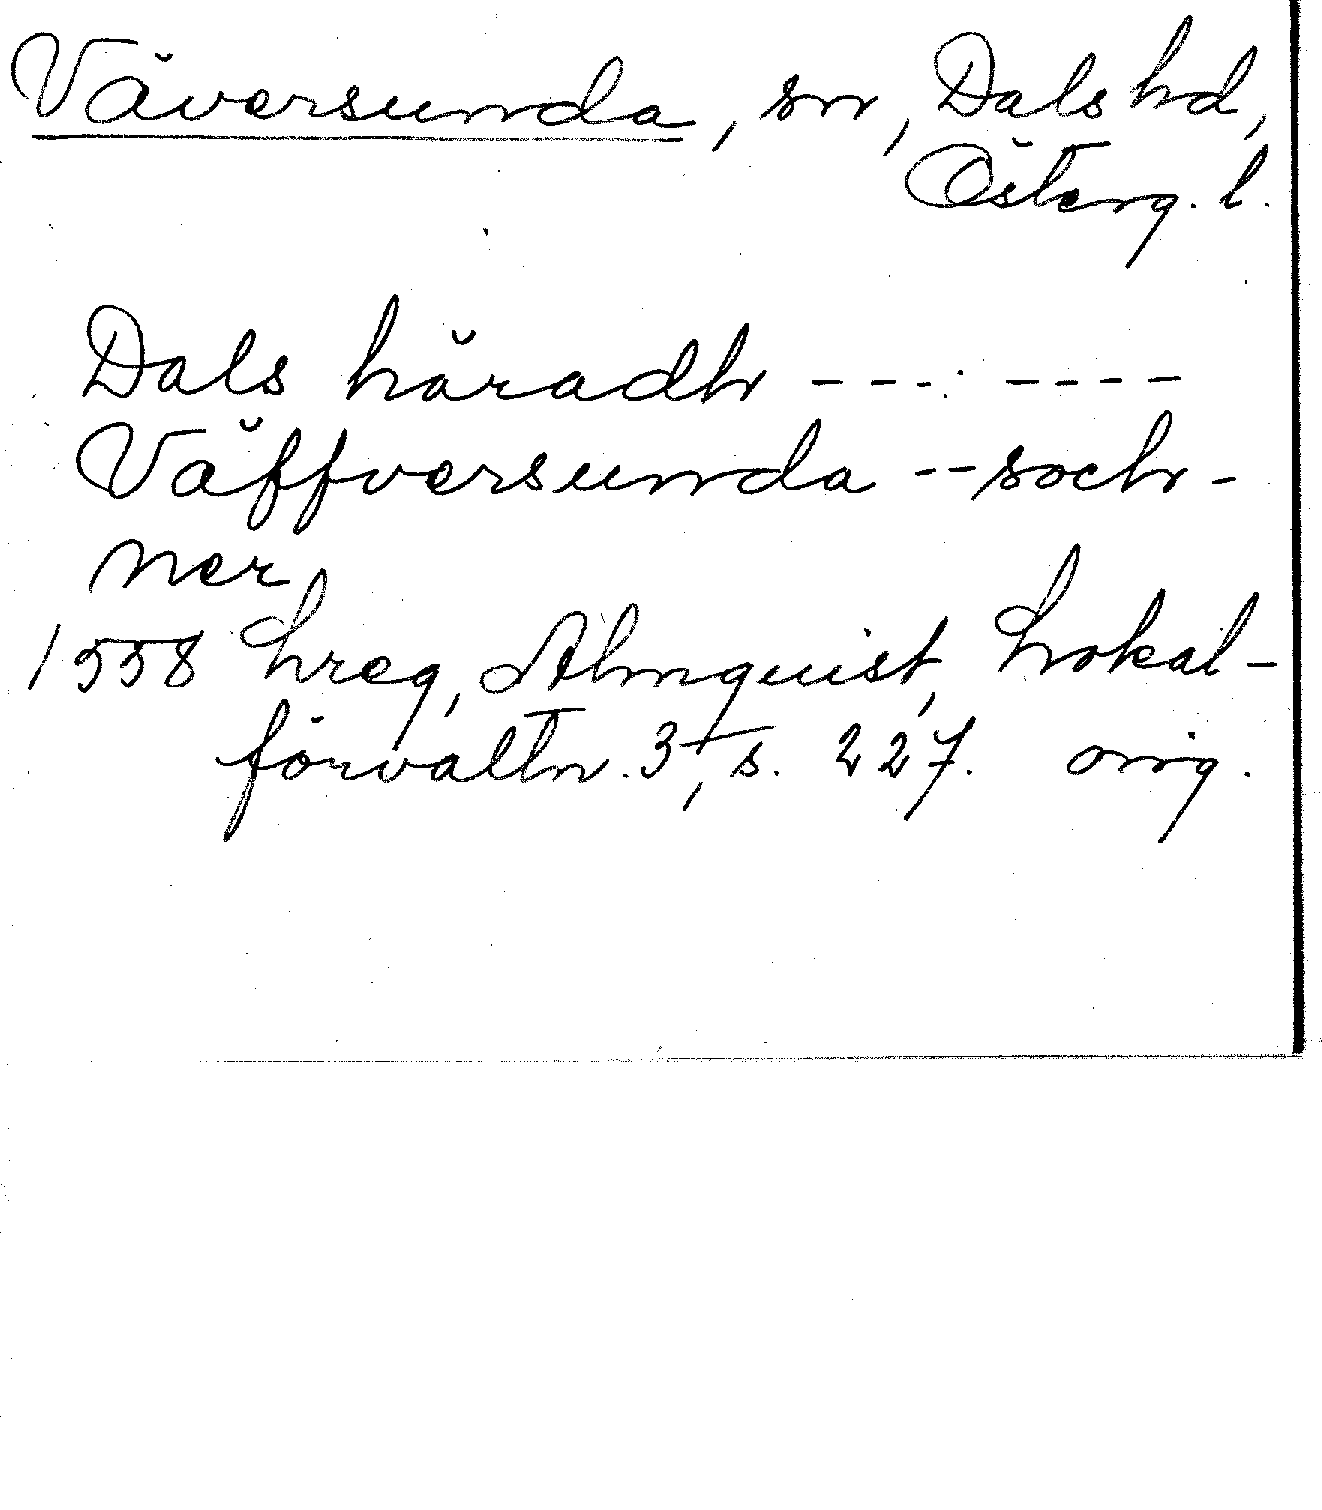 Väversunda, sn, Dals hd,
Österg. l.
Dals häradh ---- ----
Väffversunda -- soch-
ner
1558 Lreg, Almquist, Lokal-
förvaltn. 3, s. 227. orig.